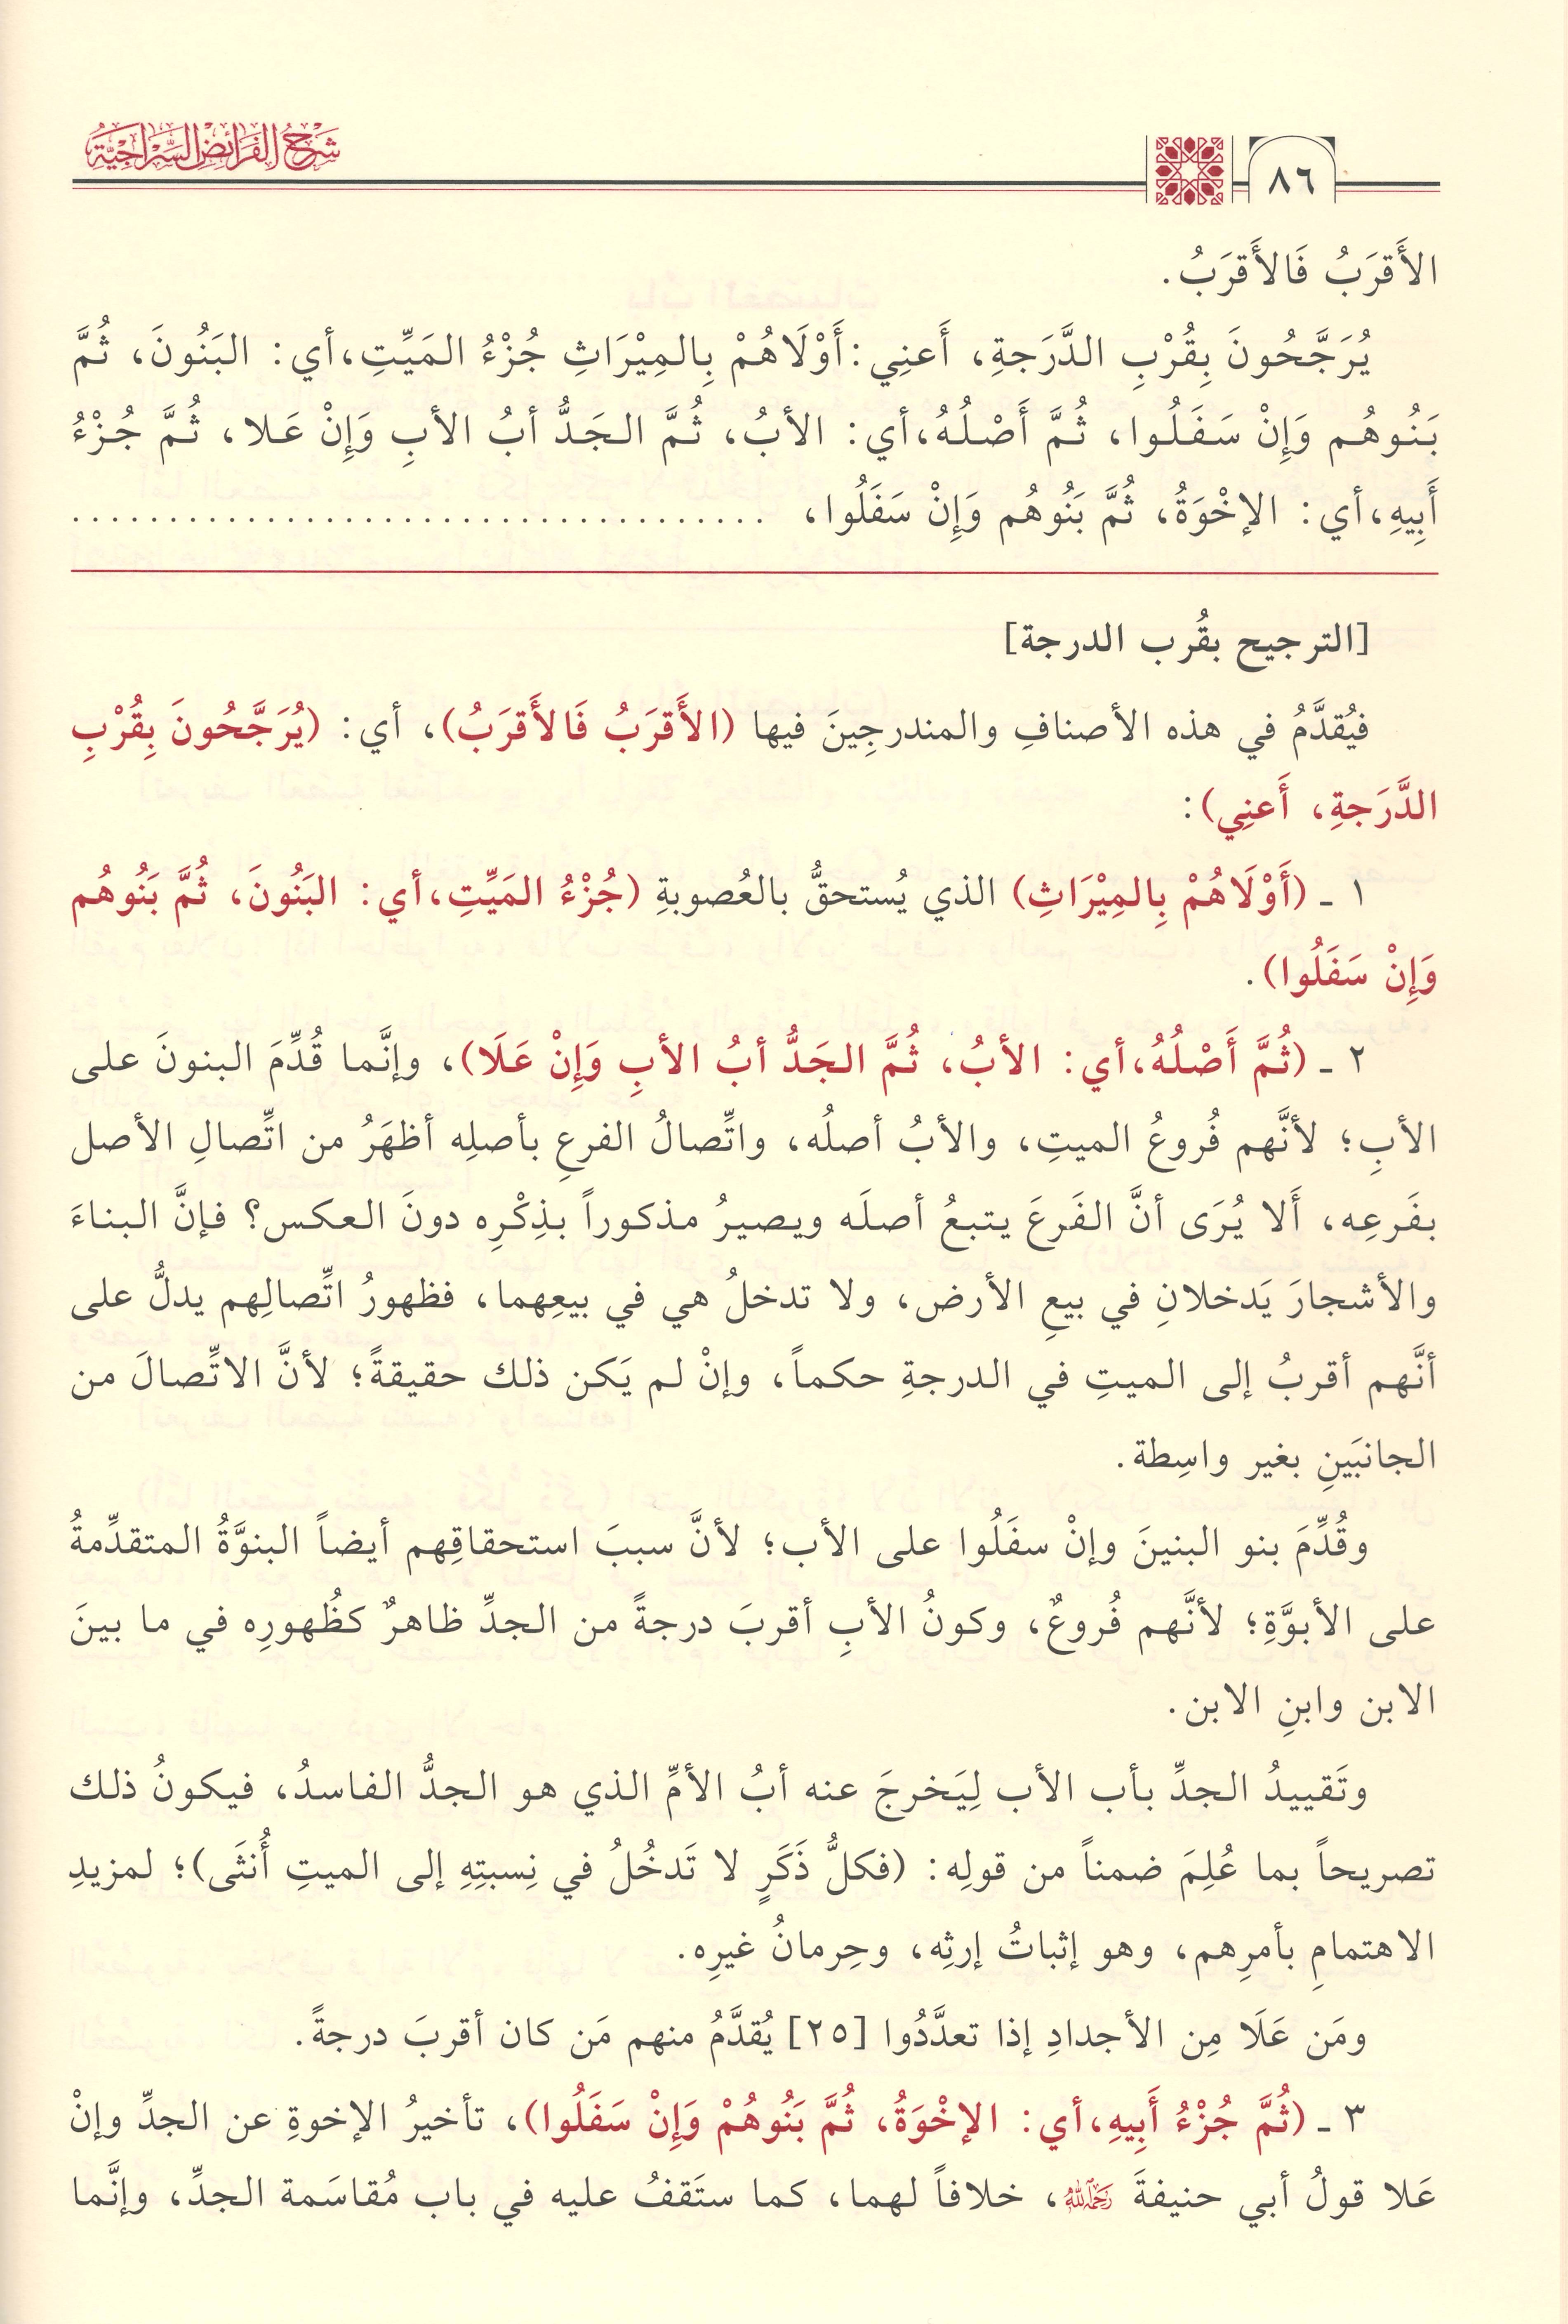 شَرْحُ الفَرَائِضِ السِّرَاجِيَّةِ
٨٦
الأَقرَبُ فَالأَقرَبُ.
يُرَجَّحُونَ بِقُرْبِ الدَّرَجةِ، أَعنِي: أَوْلَاهُمْ بِالمِيْرَاثِ جُزْءُ المَيِّتِ، أي: البَنُونَ، ثُمَّ
بَنُوهُم وَإِنْ سَفَلُوا، ثُمَّ أَصْلُهُ، أي: الأبُ، ثُمَّ الجَدُّ أبُ الأبِ وَإِنْ عَلا، ثُمَّ جُزْءُ
أَبِيهِ، أي: الإخْوَةُ، ثُمَّ بَنُوهُم وَإِنْ سَفَلُوا، ......................................
[الترجيح بقُرب الدرجة]
فيُقدَّمُ في هذه الأصنافِ والمندرجِينَ فيها (الأَقرَبُ فَالأَقرَبُ)، أي: (يُرَجَّحُونَ بِقُرْبِ
الدَّرَجةِ، أَعنِي):
١ ـ (أَوْلَاهُمْ بِالمِيْرَاثِ) الذي يُستحقُّ بالعُصوبةِ (جُزْءُ المَيِّتِ، أي: البَنُونَ، ثُمَّ بَنُوهُم
وَإِنْ سَفَلُوا).
٢ ـ (ثُمَّ أَصْلُهُ، أي: الأبُ، ثُمَّ الجَدُّ أبُ الأبِ وَإِنْ عَلَا)، وإنَّما قُدِّمَ البنونَ على
الأبِ؛ لأنَّهم فُروعُ الميتِ، والأبُ أصلُه، واتِّصالُ الفرعِ بأصلِه أظهَرُ من اتِّصالِ الأصل
بفَرعِه، أَلا يُرَى أنَّ الفَرعَ يتبعُ أصلَه ويصيرُ مذكوراً بذِكْرِه دونَ العكس؟ فإنَّ البناءَ
والأشجارَ يَدخلانِ في بيعِ الأرض، ولا تدخلُ هي في بيعِهما، فظهورُ اتِّصالِهم يدلُّ على
أنَّهم أقربُ إلى الميتِ في الدرجةِ حكماً، وإنْ لم يَكن ذلك حقيقةً؛ لأنَّ الاتِّصالَ من
الجانبَينِ بغير واسِطة.
وقُدِّمَ بنو البنينَ وإنْ سفَلُوا على الأب؛ لأنَّ سببَ استحقاقِهم أيضاً البنوَّةُ المتقدِّمةُ
على الأبوَّةِ؛ لأنَّهم فُروعٌ، وكونُ الأبِ أقربَ درجةً من الجدِّ ظاهرٌ كظُهورِه في ما بينَ
الابن وابنِ الابن.
وتَقييدُ الجدِّ بأب الأب لِيَخرجَ عنه أبُ الأمِّ الذي هو الجدُّ الفاسدُ، فيكونُ ذلك
تصريحاً بما عُلِمَ ضمناً من قولِه: (فكلُّ ذَكَرٍ لا تَدخُلُ في نِسبتِهِ إلى الميتِ أُنثَى)؛ لمزيدِ
الاهتمامِ بأمرِهم، وهو إثباتُ إرثِه، وحِرمانُ غيرِه.
ومَن عَلَا مِن الأجدادِ إذا تعدَّدُوا [٢٥] يُقدَّمُ منهم مَن كان أقربَ درجةً.
٣ ـ (ثُمَّ جُزْءُ أَبِيهِ، أي: الإخْوَةُ، ثُمَّ بَنُوهُمْ وَإِنْ سَفَلُوا)، تأخيرُ الإخوةِ عن الجدِّ وإنْ
عَلا قولُ أبي حنيفةَ رَحِمَهُ اللهُ، خلافاً لهما، كما ستَقفُ عليه في باب مُقاسَمة الجدِّ، وإنَّما